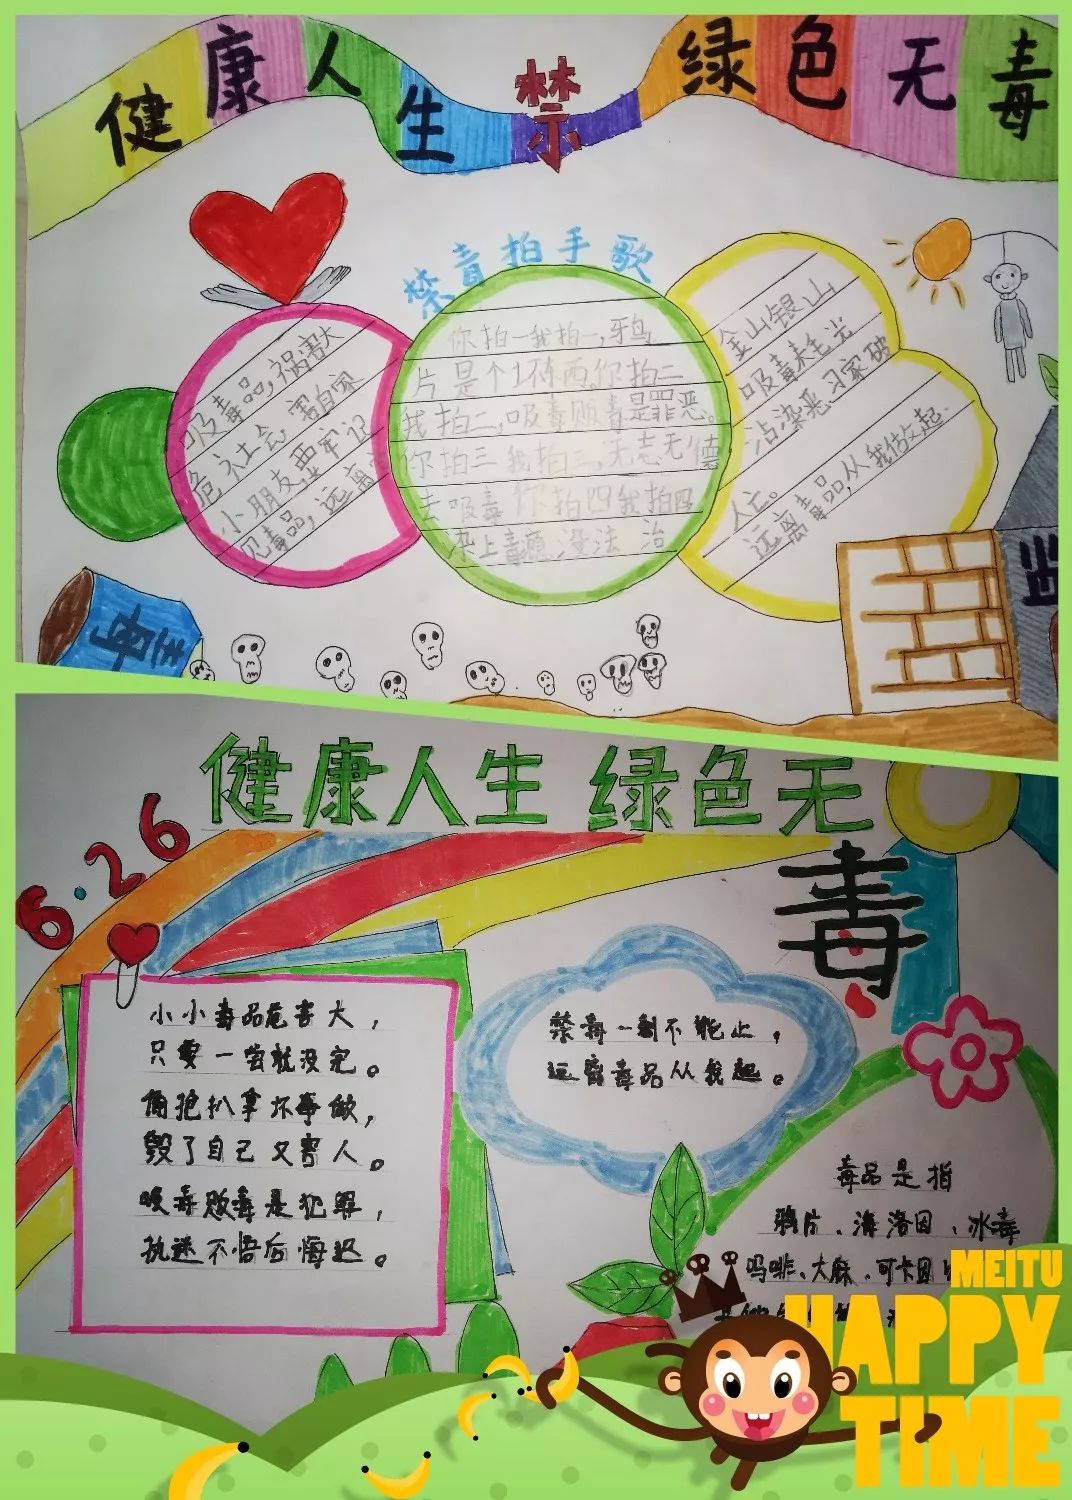 健康人生 禁 绿色无毒
禁毒拍手歌
吸毒品,祸害大
危社会,害自家
小朋友,要牢记
见毒品,远离
你拍一我拍一,鸦
片是个坏东西,你拍二
我拍二,吸毒贩毒是罪恶。
你拍三我拍三,无志无德
去吸毒你拍四我拍四
染上毒瘾没法治
金山银山
吸毒未毛光
沾染恶习家破
人亡。
远离毒品,从我做起.
毒
监
健康人生 绿色无
毒
6·26
小小毒品危害大,
只要一尝就没完。
偷抢扒拿坏事做,
毁了自己又害人。
吸毒贩毒是犯罪,
执迷不悟后悔迟。
禁毒一刻不能止,
远离毒品从我起。
毒品是指
鸦片、海洛因、冰毒
吗啡、大麻、可卡因
MEITU
HAPPY
TIME